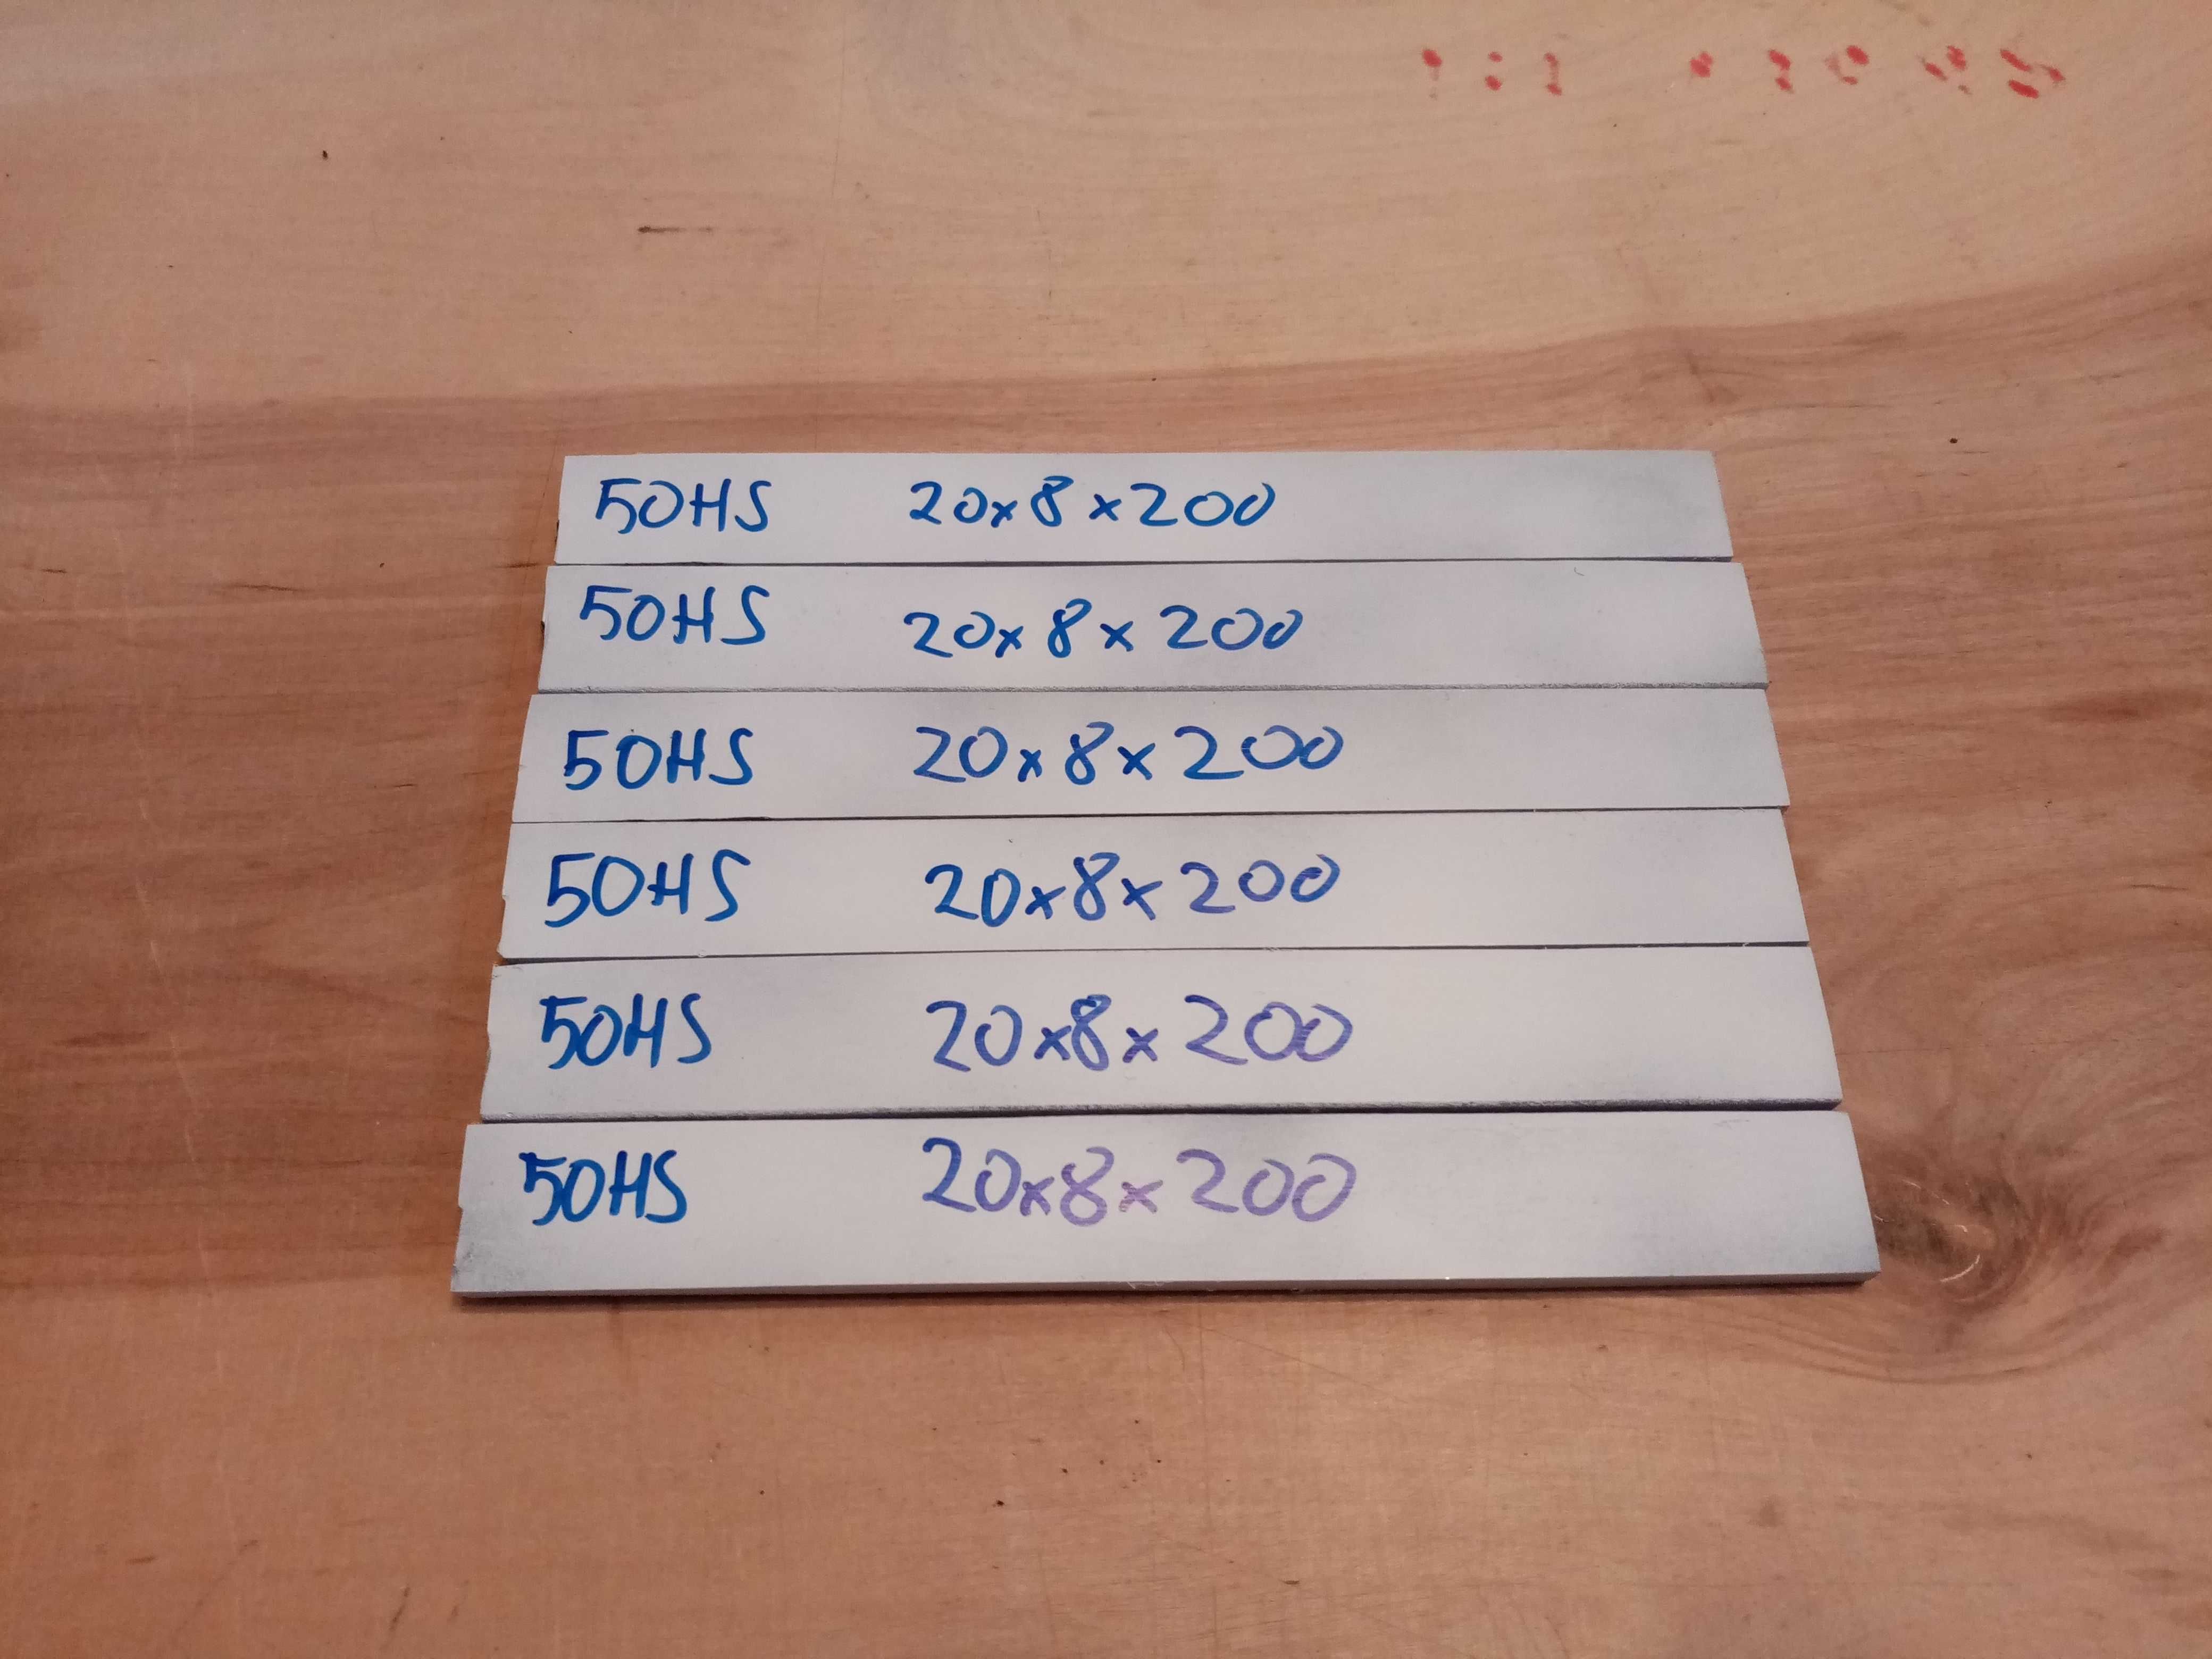 50HS 20x8x200
50HS 20x8x200
50HS 20x8x200
50HS 20x8x200
50HS 20x8x200
50HS 20x8x200